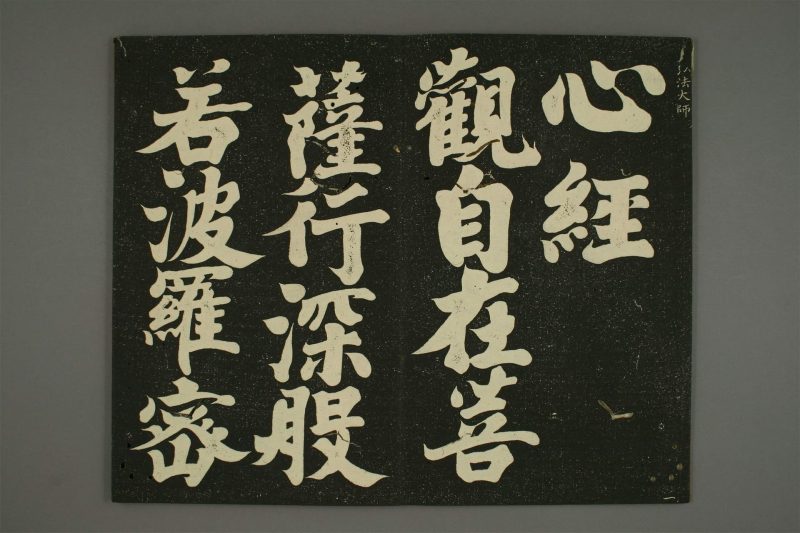 弘法大師
心経
觀自在菩
薩行深般
若波羅蜜
一